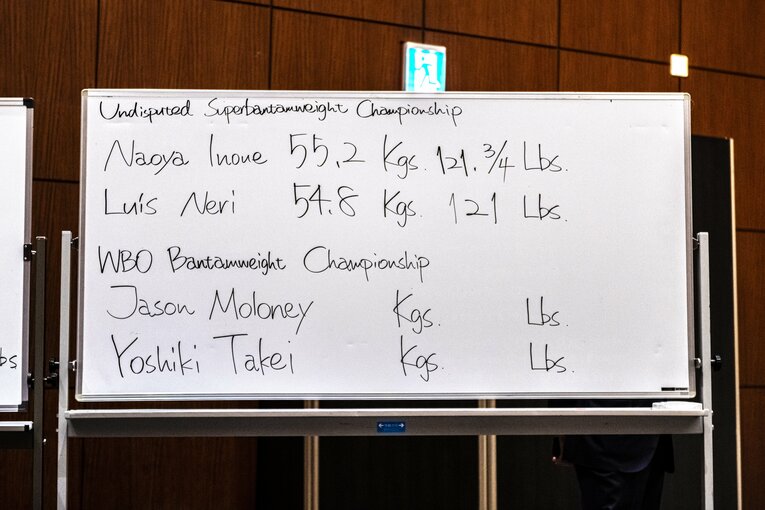 Undisputed Superbantamweight Championship
Naoya Inoue 55.2 Kgs. 121.3/4 Lbs.
Luis Neri 54.8 Kgs. 121 Lbs.
WBO Bantamweight Championship
Jason Moloney Kgs. Lbs.
Yoshiki Takei Kgs. Lbs.
bs